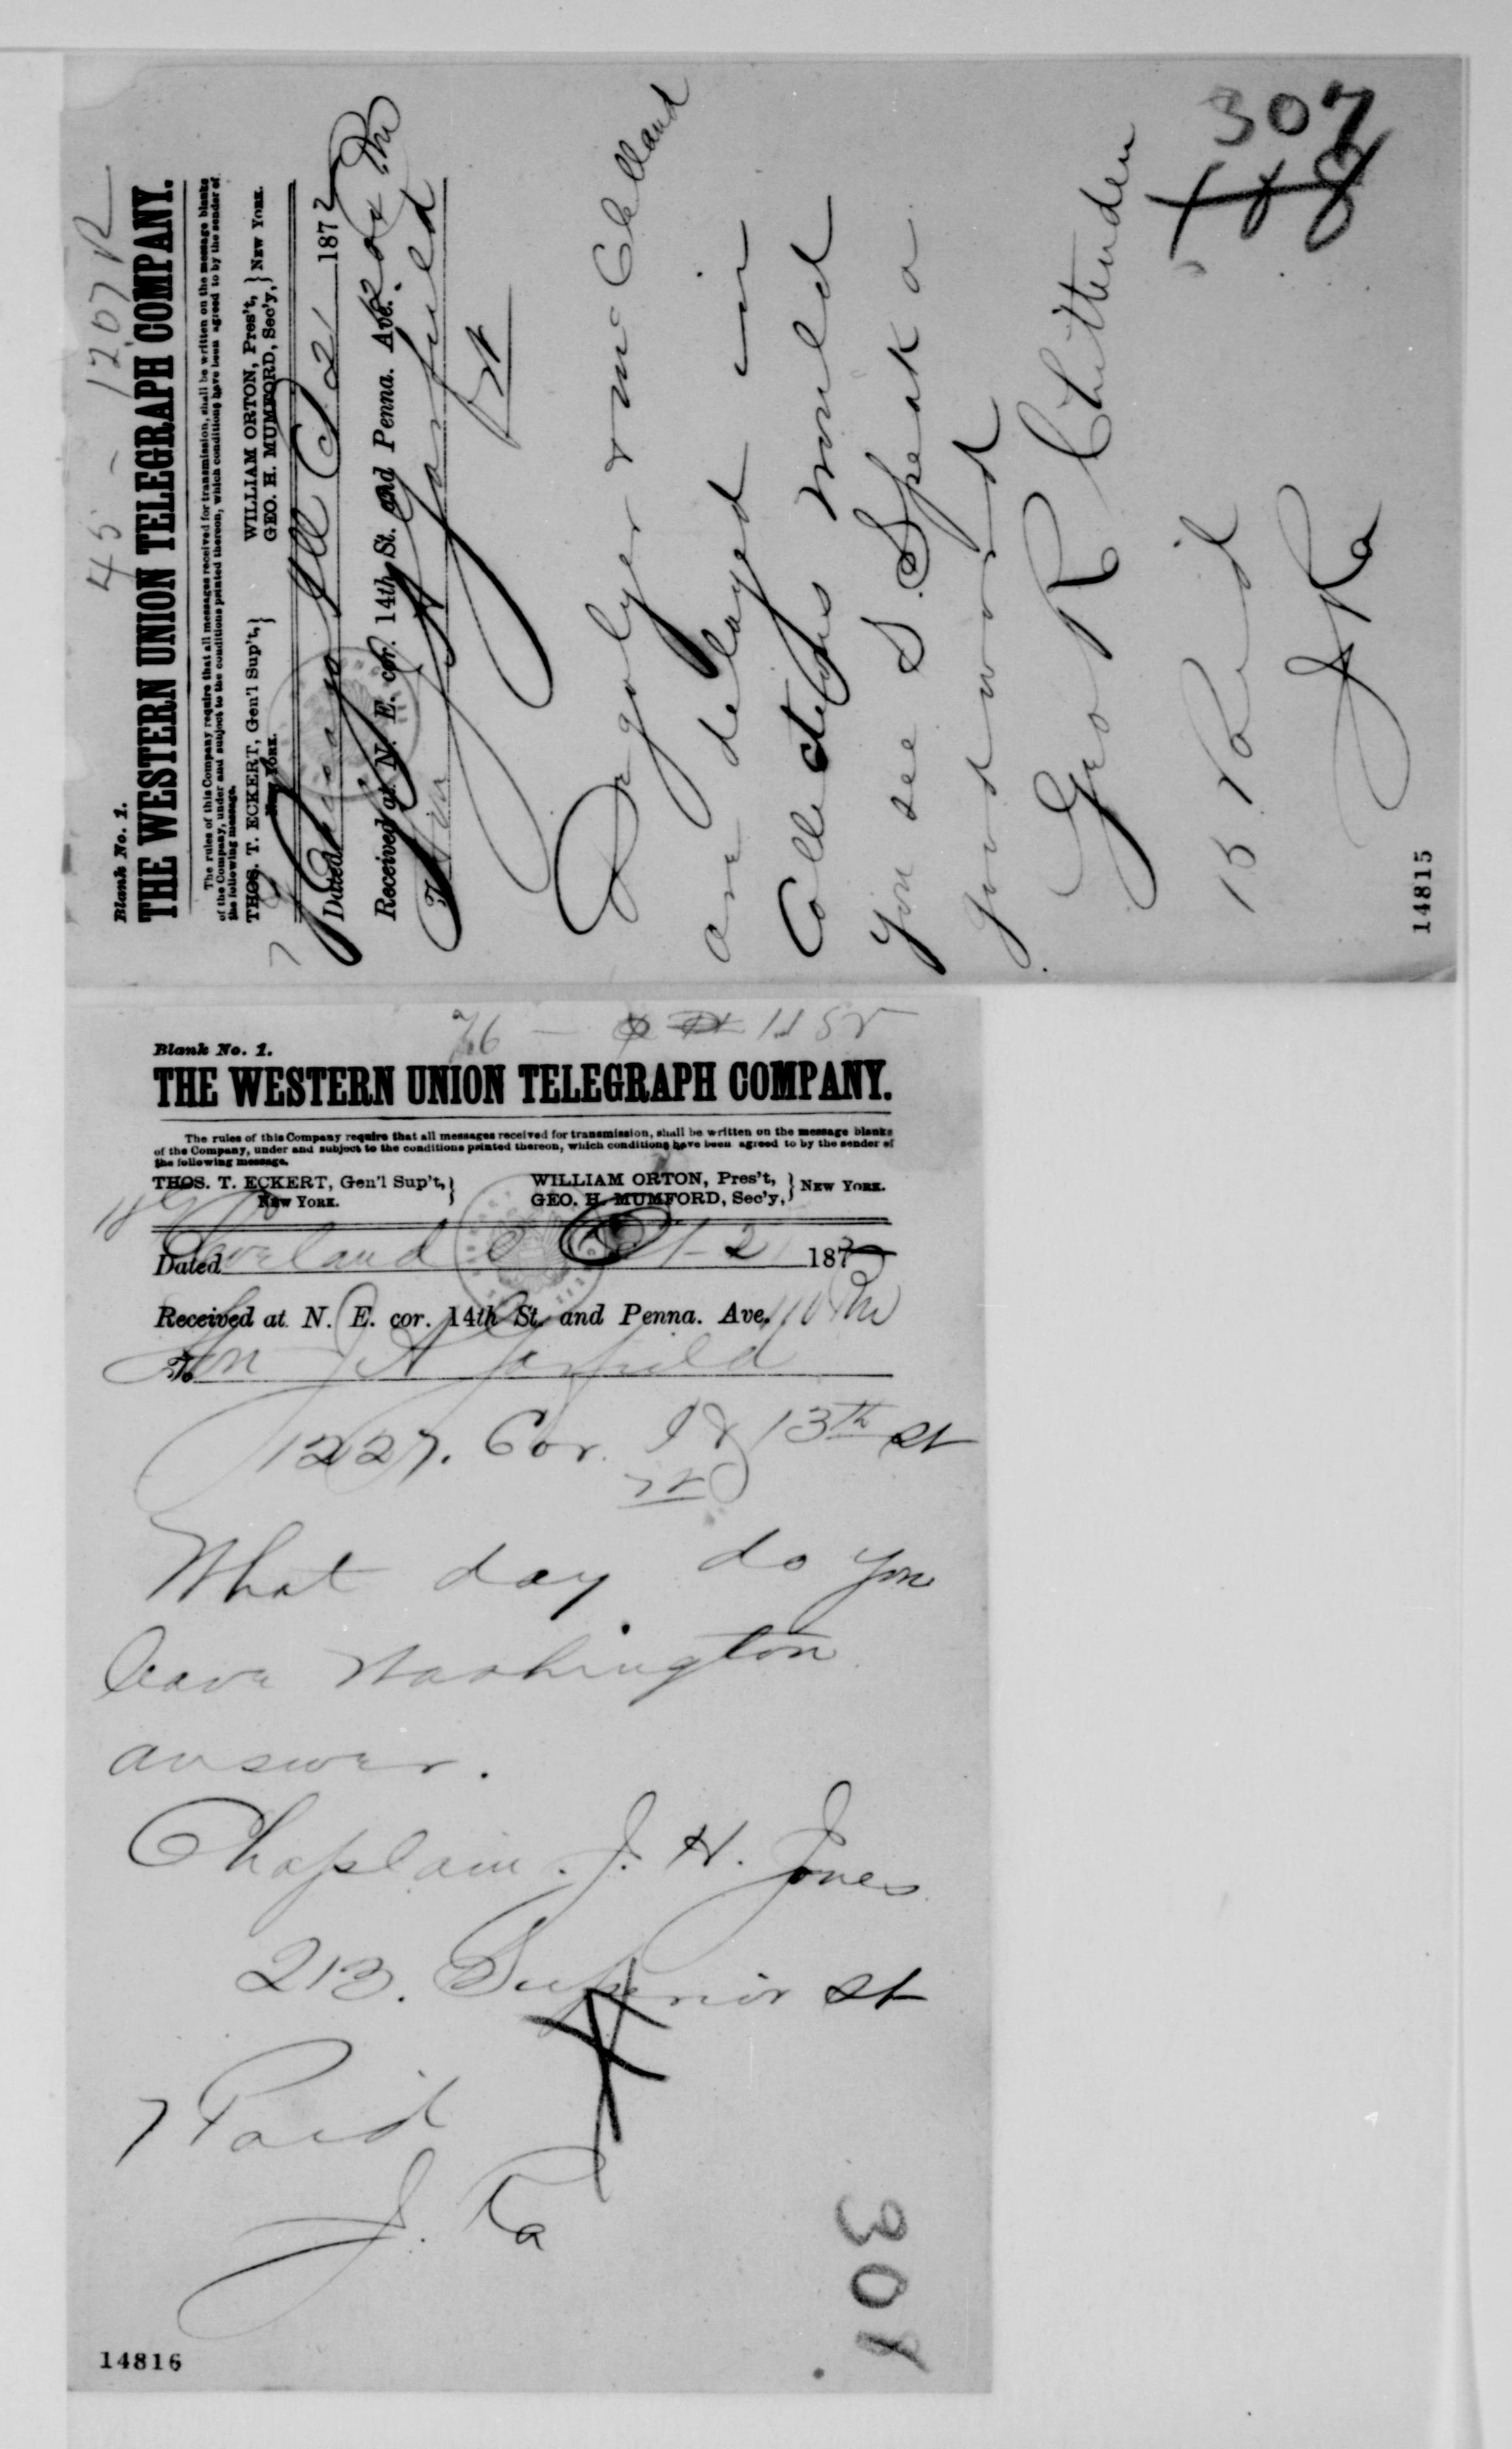 45 - 1207 R
Blank No. 1.
THE WESTERN UNION TELEGRAPH COMPANY.
The rules of this Company require that all messages received for transmission, shall be written on the message blanks
of the Company, under and subject to the conditions printed thereon, which conditions have been agreed to by the sender of
the following message.
THOS. T. ECKERT, Gen'l Sup't, } WILLIAM ORTON, Pres't, } NEW YORK.
NEW YORK. GEO. H. MUMFORD, Sec'y,
Dated Chicago Ills Oct 21 1872
Received at N. E. cor. 14th St. and Penna. Ave.
To Hon J A Garfield
& McClelland
are delayed in
Collections would
you see S. S. Speak a
good word
Geo R Chittenden
15 Paid
J Ka
307
14815
76 - 1158
Blank No. 1.
THE WESTERN UNION TELEGRAPH COMPANY.
The rules of this Company require that all messages received for transmission, shall be written on the message blanks
of the Company, under and subject to the conditions printed thereon, which conditions have been agreed to by the sender of
the following message.
THOS. T. ECKERT, Gen'l Sup't, } WILLIAM ORTON, Pres't, } NEW YORK.
NEW YORK. GEO. H. MUMFORD, Sec'y,
Dated Cleveland O Oct - 21 1872
Received at N. E. cor. 14th St. and Penna. Ave.
To Gen J A Garfield
1227. Cor. I & 13th st
What day do you
leave Washington
answer.
Chaplain. J. H. Jones
213. Superior st
7 Paid
J. Ka
308
14816